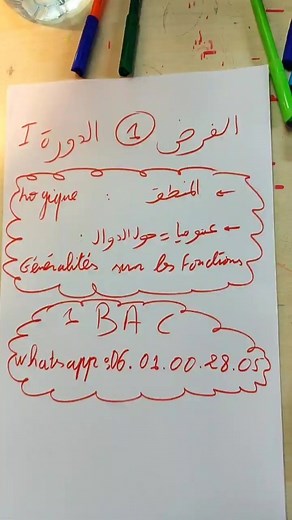 الفرض 1 الدورة I
← المنطق : Logique
← عموميات حول الدوال.
Généralités sur les Fonctions
1 BAC
whatsapp: 06.01.00.28.05